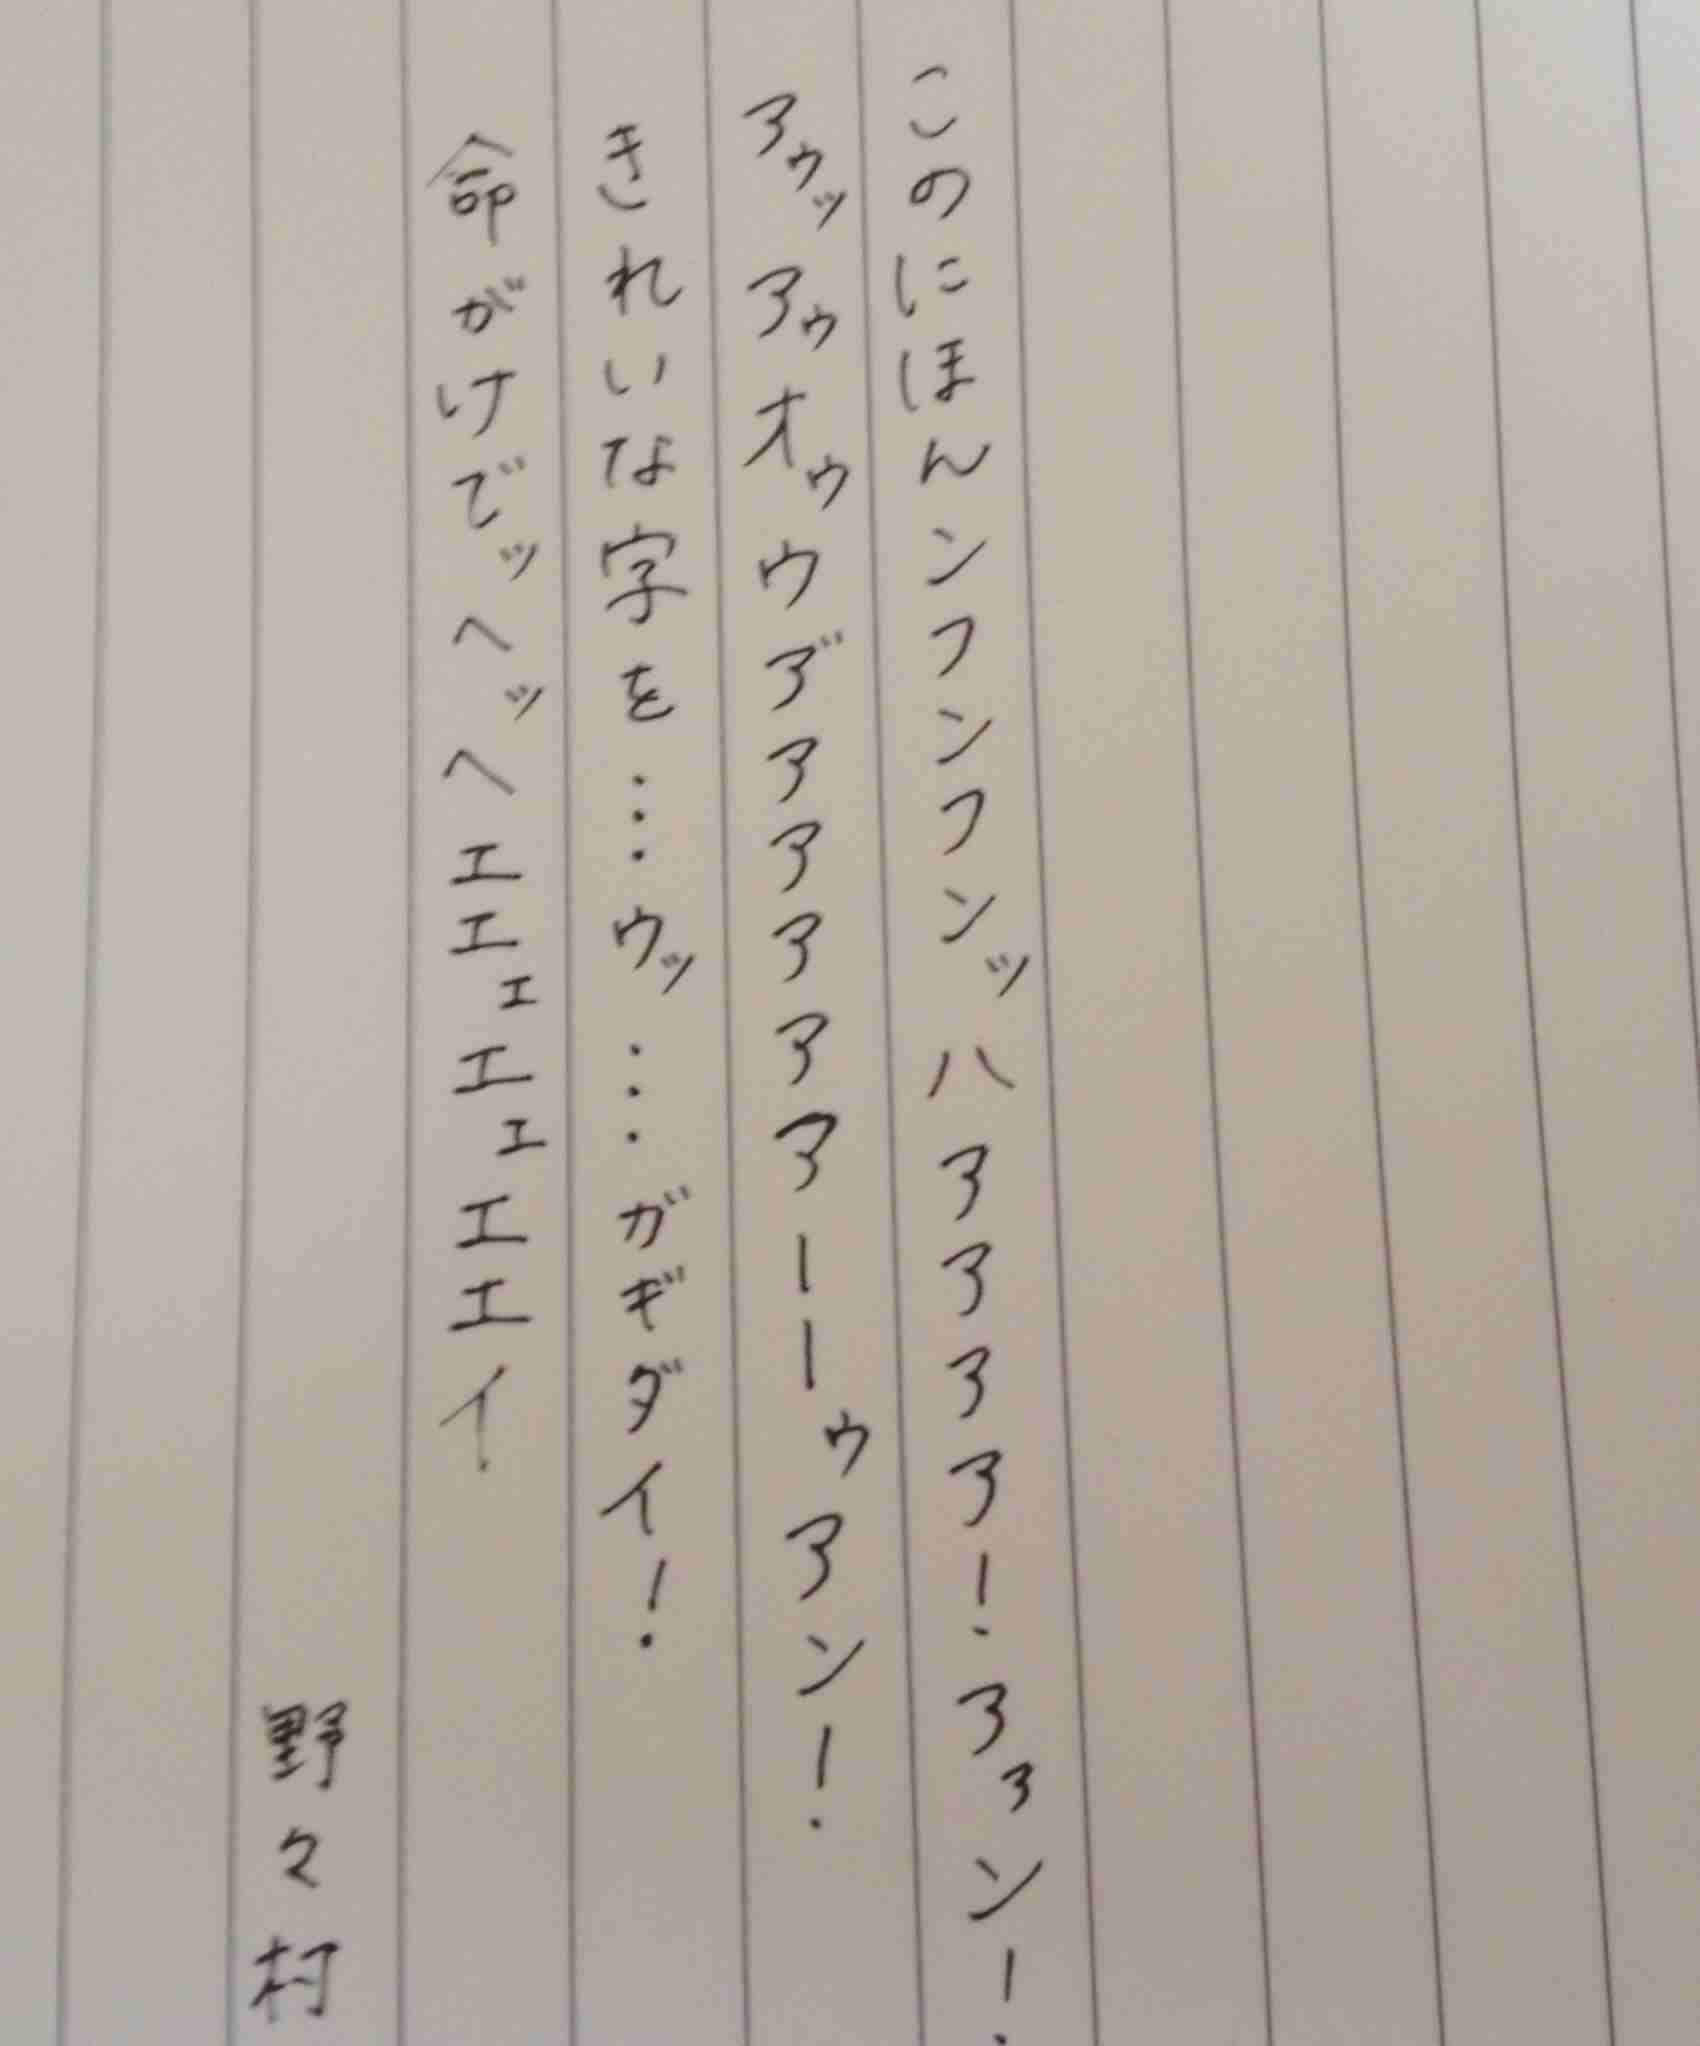 このにほんンフンフンッハアアアア！アァン！
アゥッアゥオゥウア゛アアアアアーーゥアン！
きれいな字を…ウッ…ガギダイ！
命がけでッヘッヘエエェエェエエイ
野々村